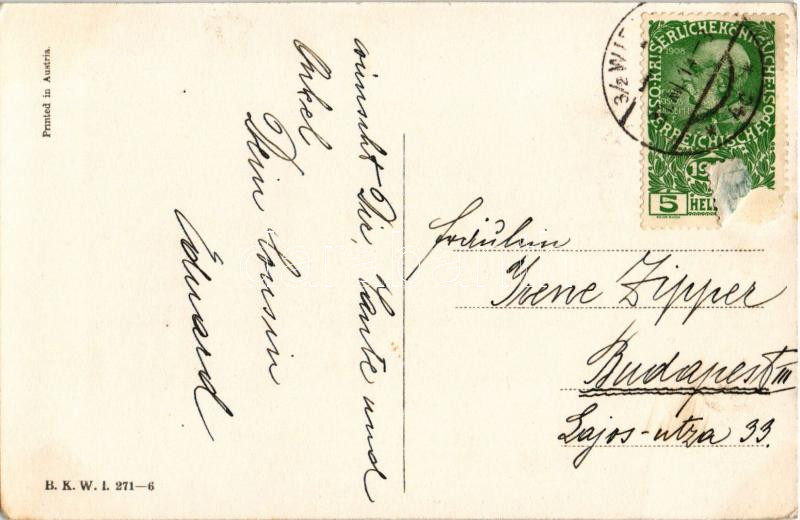 Printed in Austria.
wünscht Dir, Tante und
Onkel
Dein Cousin
Eduard
B. K. W. I. 271—6
3/2 WI
1908
5 HEL
Fräulein
Irene Zipper
Budapest III
Lajos-utza 33.